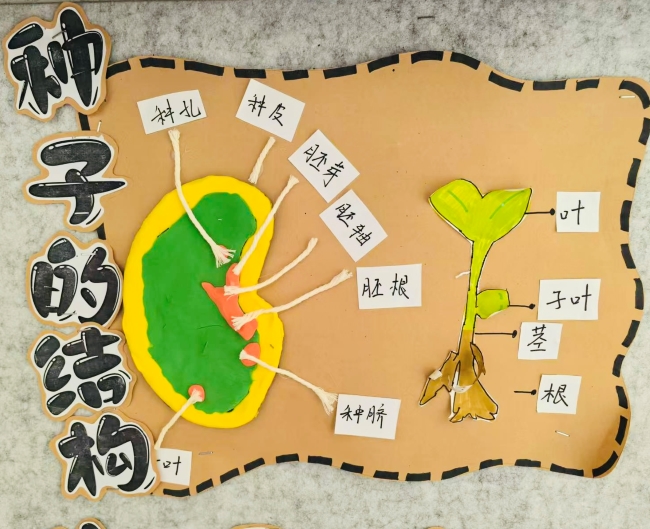 种子的结构
种孔
种皮
胚芽
胚轴
胚根
种脐
叶
叶
子叶
茎
根